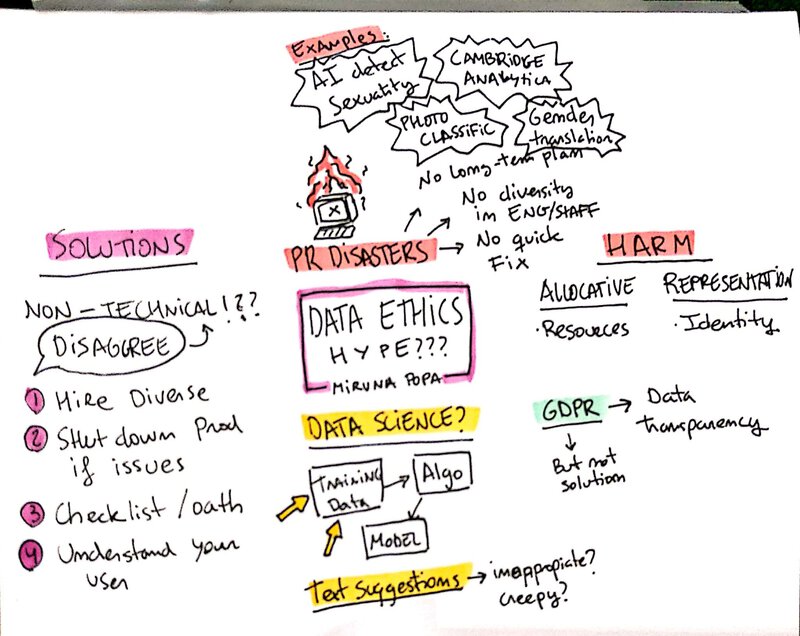 Examples:
AI detect
Sexuality
CAMBRIDGE
ANAlytica
PHOTO
CLASSIFIC
Gender
translation
No long-term plan
No diversity
in ENG/STAFF
No quick
Fix
X
PR DISASTERS
SOLUTIONS
NON - TECHNICAL!???
DISAGGREE
1 Hire Diverse
2 Shut down Prod
if issues
3 Checklist /oath
4 Understand your
user
DATA ETHICS
HYPE???
MIRUNA POPA
HARM
ALLOCATIVE
·Resources
REPRESENTATION
·Identity
GDPR → Data
transparency
But not
solution
DATA SCIENCE?
TRAINING
Data
Algo
MODEL
Text Suggestions → inappropiate?
creepy?